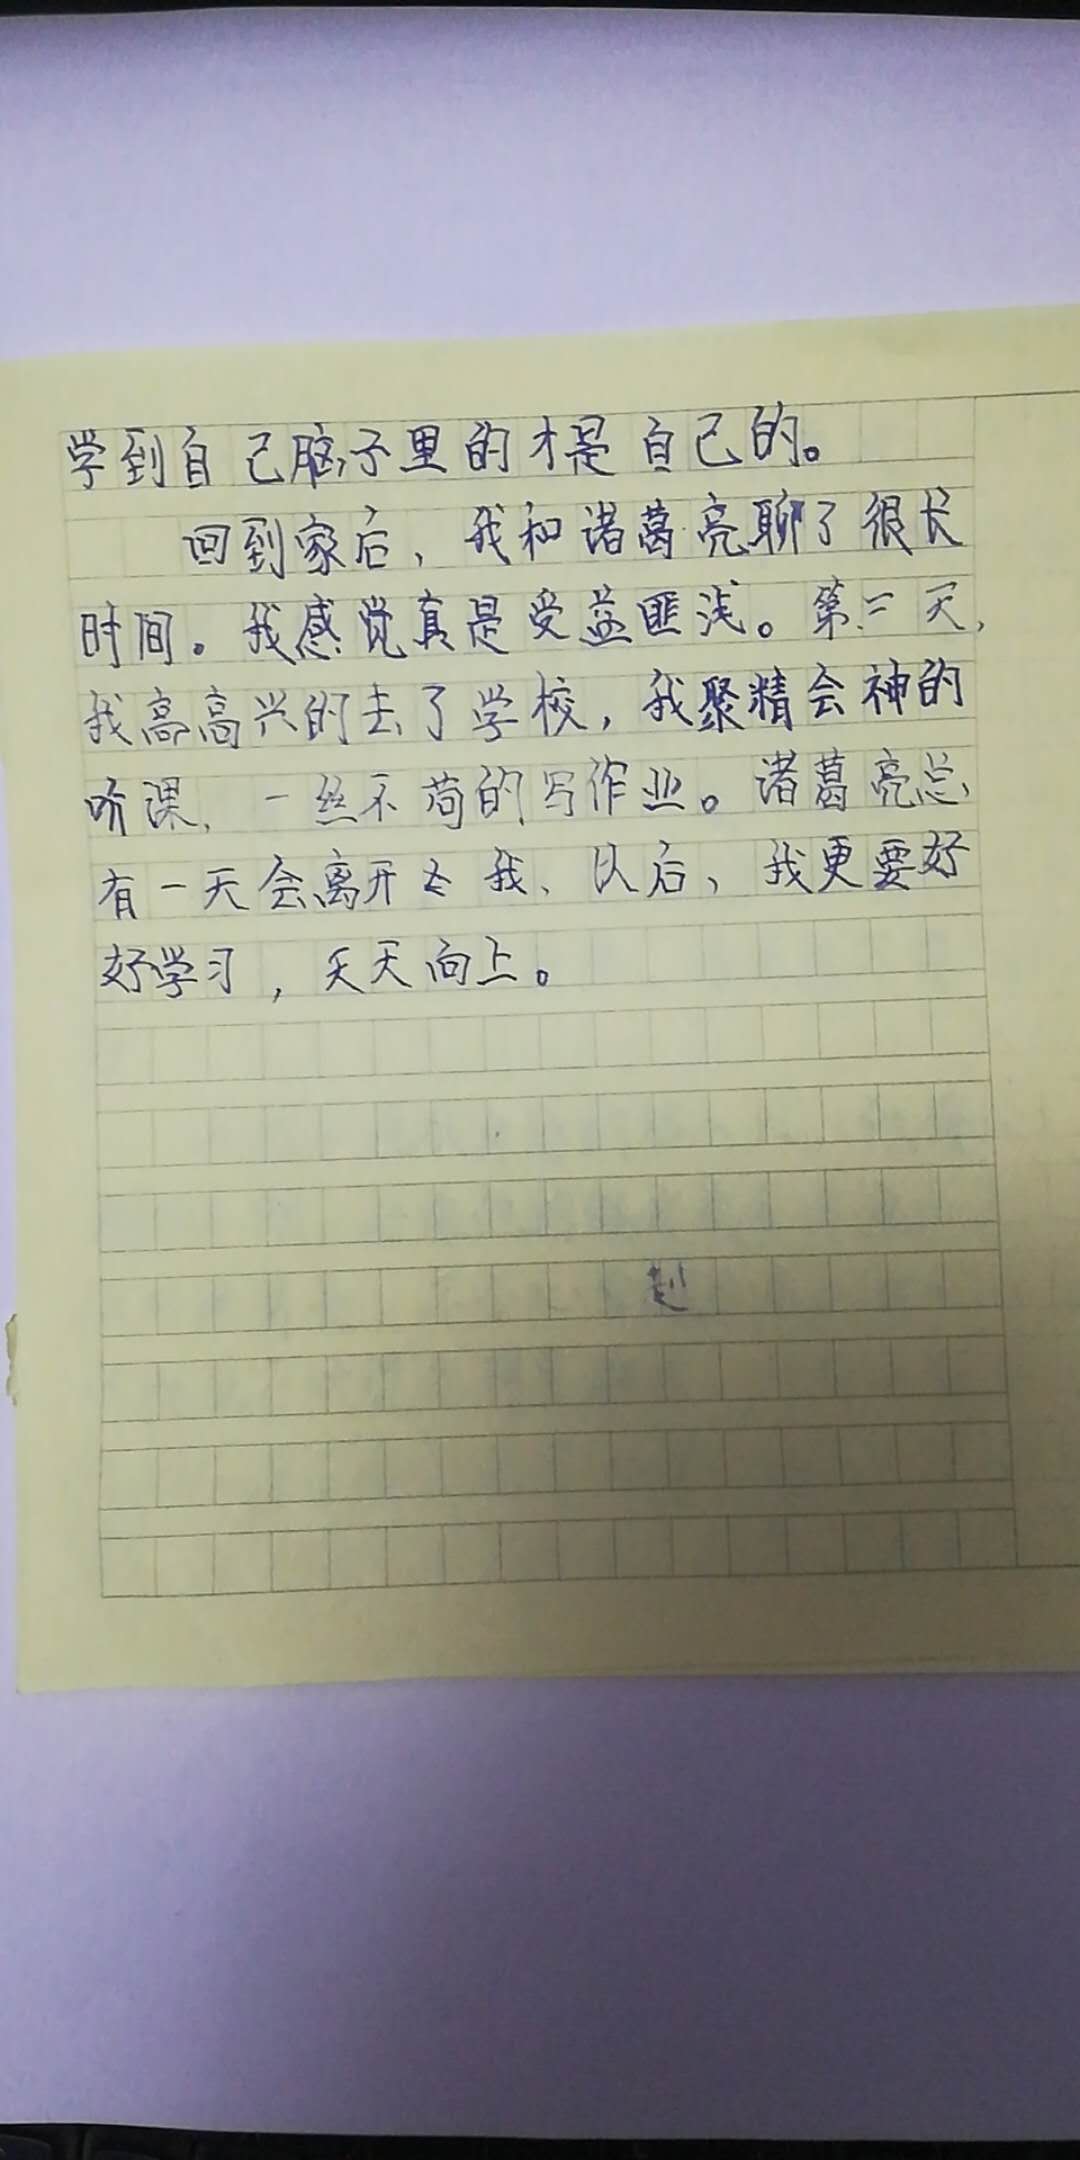 学到自己脑子里的才是自己的。
回到家后，我和诸葛亮聊了很长
时间。我感觉真是受益匪浅。第二天，
我高高兴的去了学校，我聚精会神的
听课，一丝不苟的写作业。诸葛亮总
有一天会离开我、以后，我更要好
好学习，天天向上。